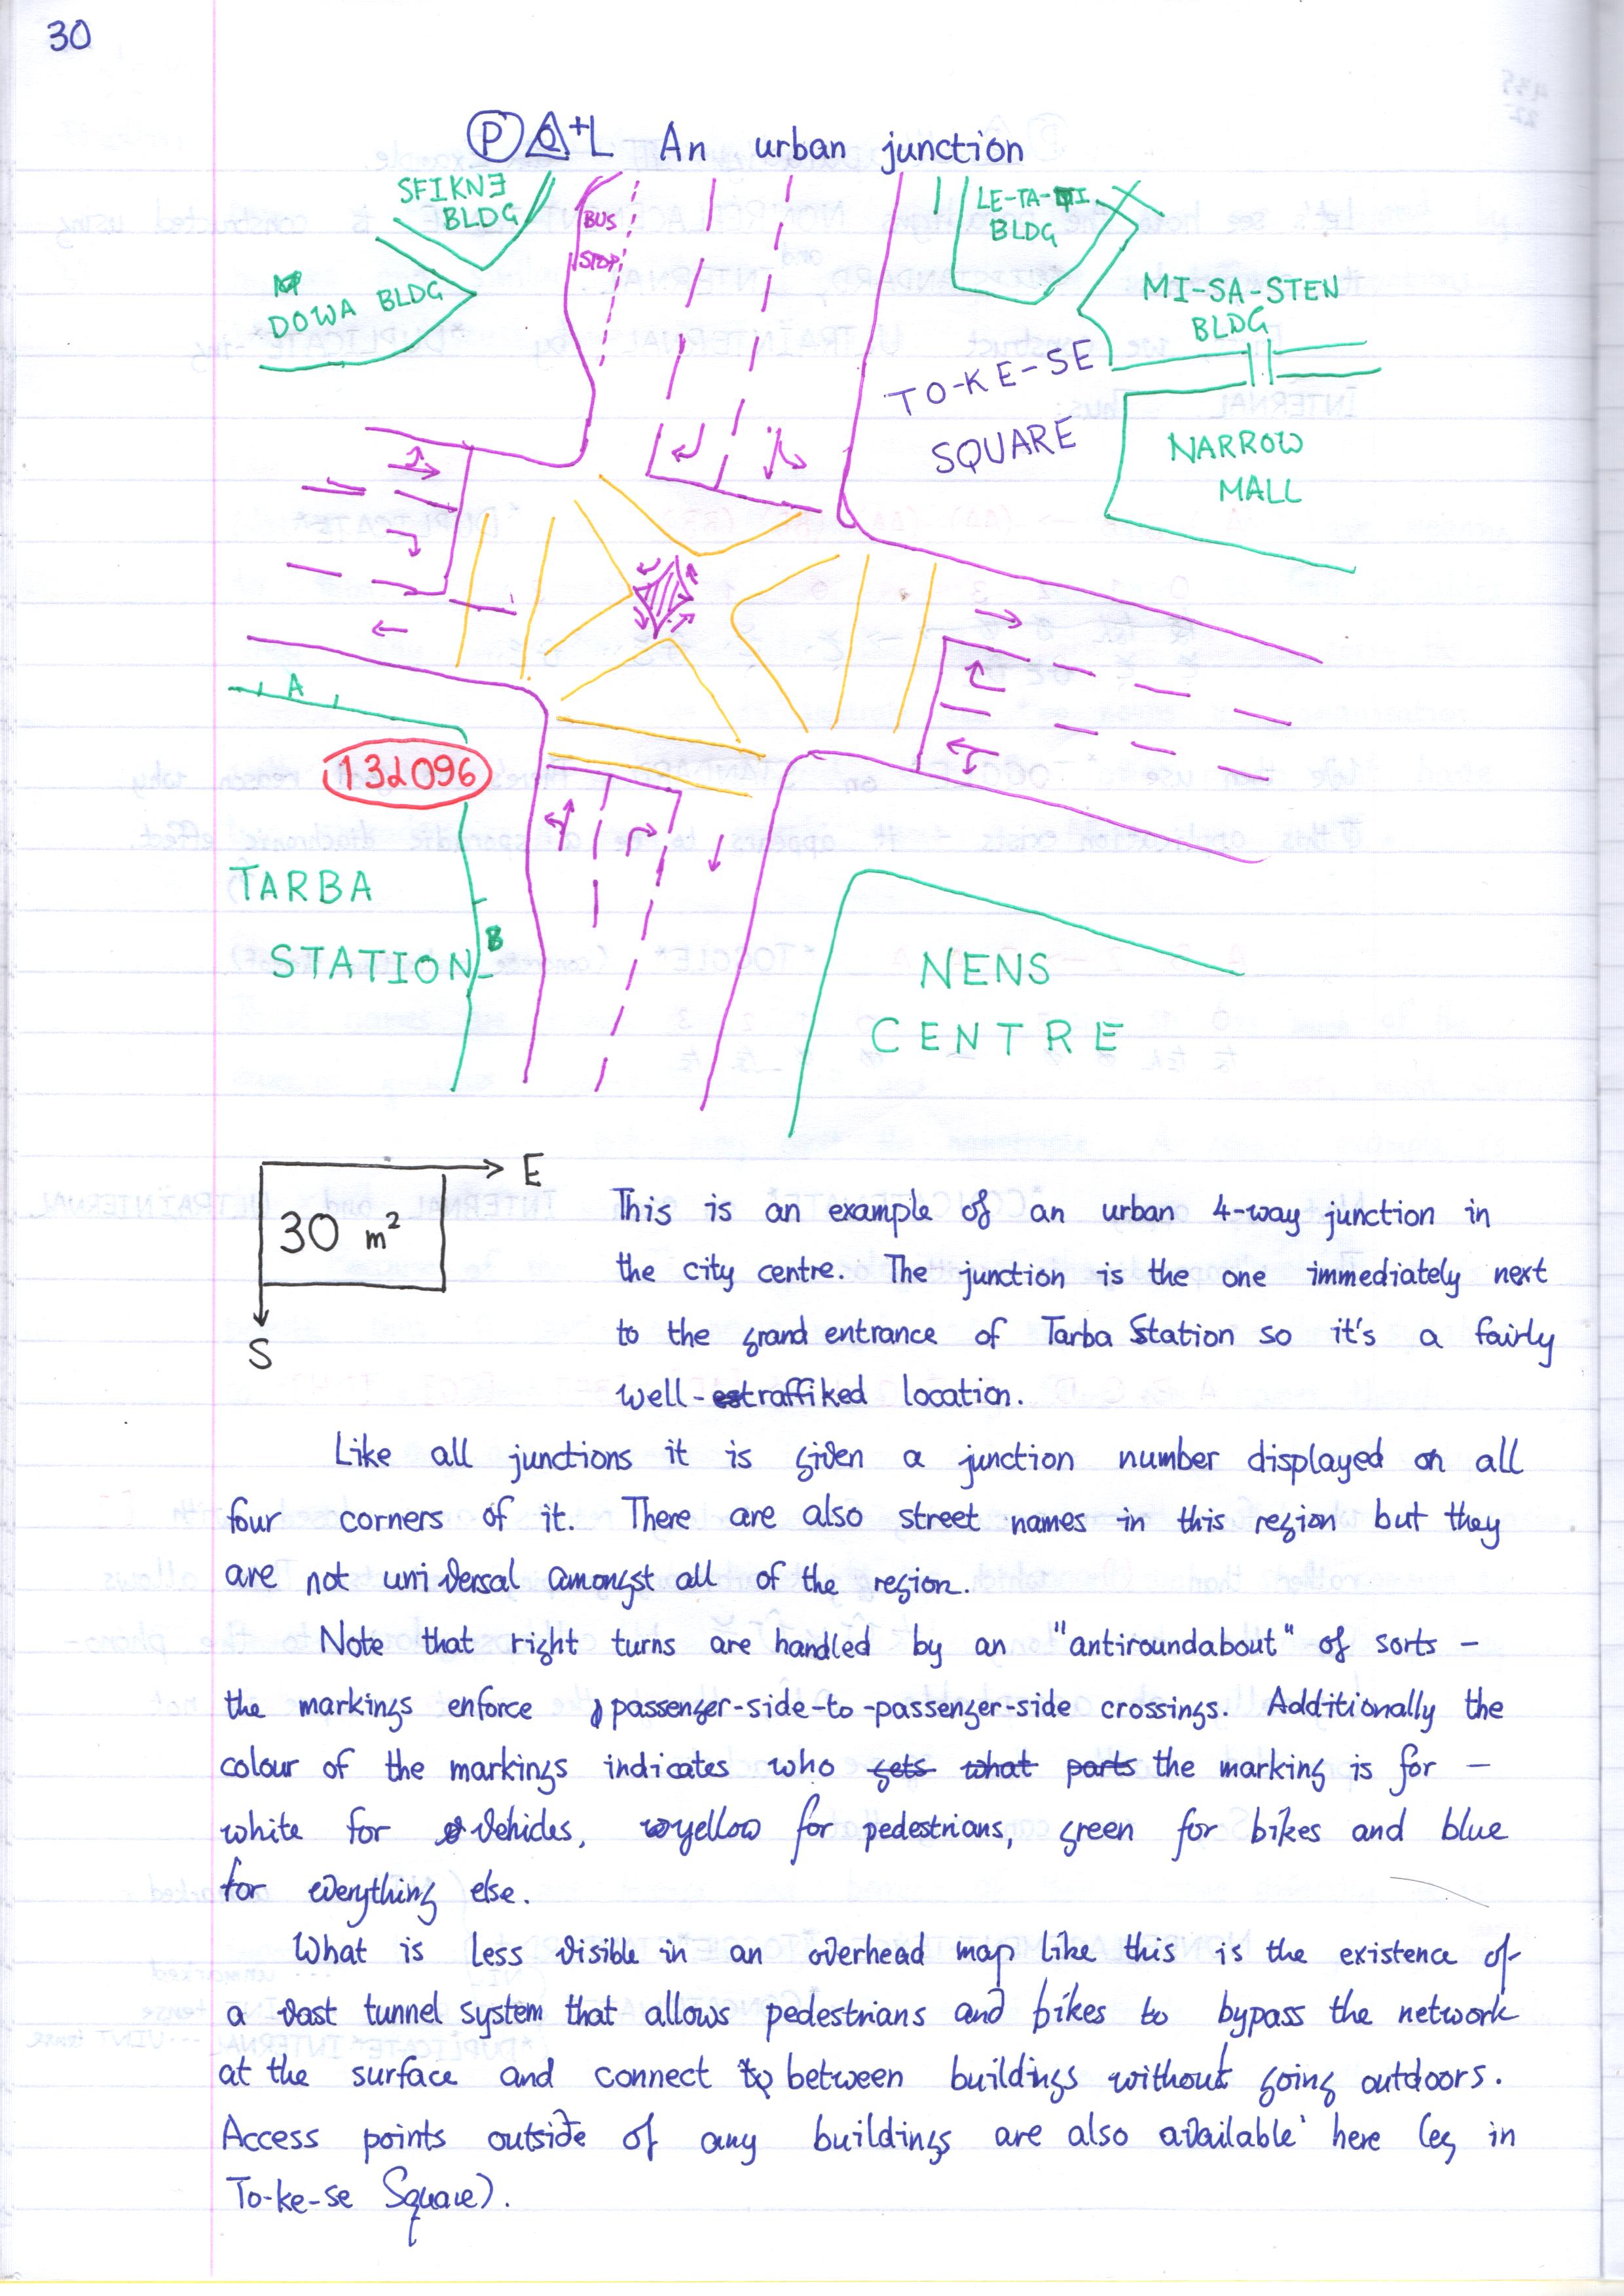 30
P Q+L An urban junction
SFIKNƎ
BLDG
DOWA BLDG
BUS
STOP
LE-TA-
BLDG
MI-SA-STEN
BLDG
TO-KE-SE
SQUARE
NARROW
MALL
A
132096
TARBA
STATION
B
NENS
CENTRE
E
30 m²
S
This is an example of an urban 4-way junction in
the city centre. The junction is the one immediately next
to the grand entrance of Tarba Station so it's a fairly
well-traffiked location.
Like all junctions it is given a junction number displayed on all
four corners of it. There are also street names in this region but they
are not universal amongst all of the region.
Note that right turns are handled by an "antiroundabout" of sorts -
the markings enforce passenger-side-to-passenger-side crossings. Additionally the
colour of the markings indicates who gets what parts the marking is for -
white for vehicles, yellow for pedestrians, green for bikes and blue
for everything else.
What is less visible in an overhead map like this is the existence of
a vast tunnel system that allows pedestrians and bikes to bypass the network
at the surface and connect between buildings without going outdoors.
Access points outside of any buildings are also available here (eg in
To-ke-se Square).